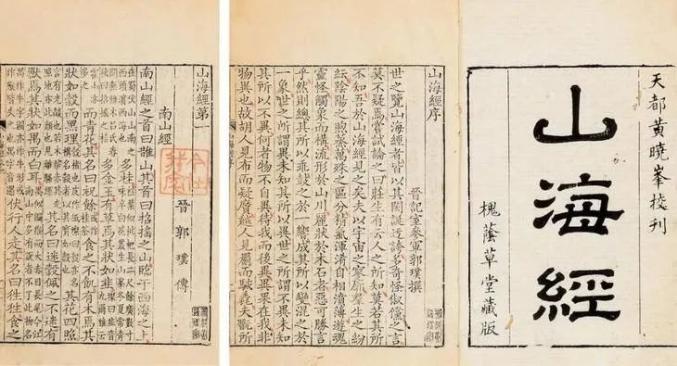 天都黃曉峯挍刊
山海經
槐蔭草堂藏版
山海經序
晉記室參軍郭璞撰
世之覽山海經者皆以其閎誕迂誇多奇怪俶儻之言
莫不疑焉嘗試論之曰莊生有云人之所知莫若其所
不知吾於山海經見之矣夫以宇宙之寥廓羣生之紛
紜陰陽之煦蒸萬殊之區分精氣渾淆自相濆薄遊魂
靈怪觸象而構流形於山川麗狀於木石者惡可勝言
乎然則總其所以乖鼓之於一響成其所以變混之於
一象世之所謂異未知其所以異世之所謂不異未知
其所以不異何者物不自異待我而後異異果在我非
物異也故胡人見布而疑黂越人見罽而駭毳夫翫所
山海經第一
晉 郭璞 傳
南山經
南山經之首曰䧿山其首曰招搖之山臨于西海之上
在蜀伏山山南之西頭濱西海也 多桂 多金玉有草焉其狀如韭
而青花其名曰祝餘 食之不飢有木焉其
狀如穀而黑理 其花四照
其名曰迷穀佩之不迷有
獸焉其狀如禺而白耳 伏行人走其名曰狌狌食之